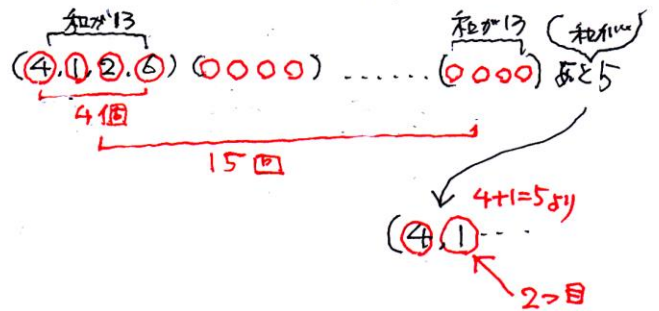 和が13 和が13 (和が…)
(4,1,2,6)(○○○○)……(○○○○) あと5
4個
15回
4+1=5より
(4,1…
2つ目